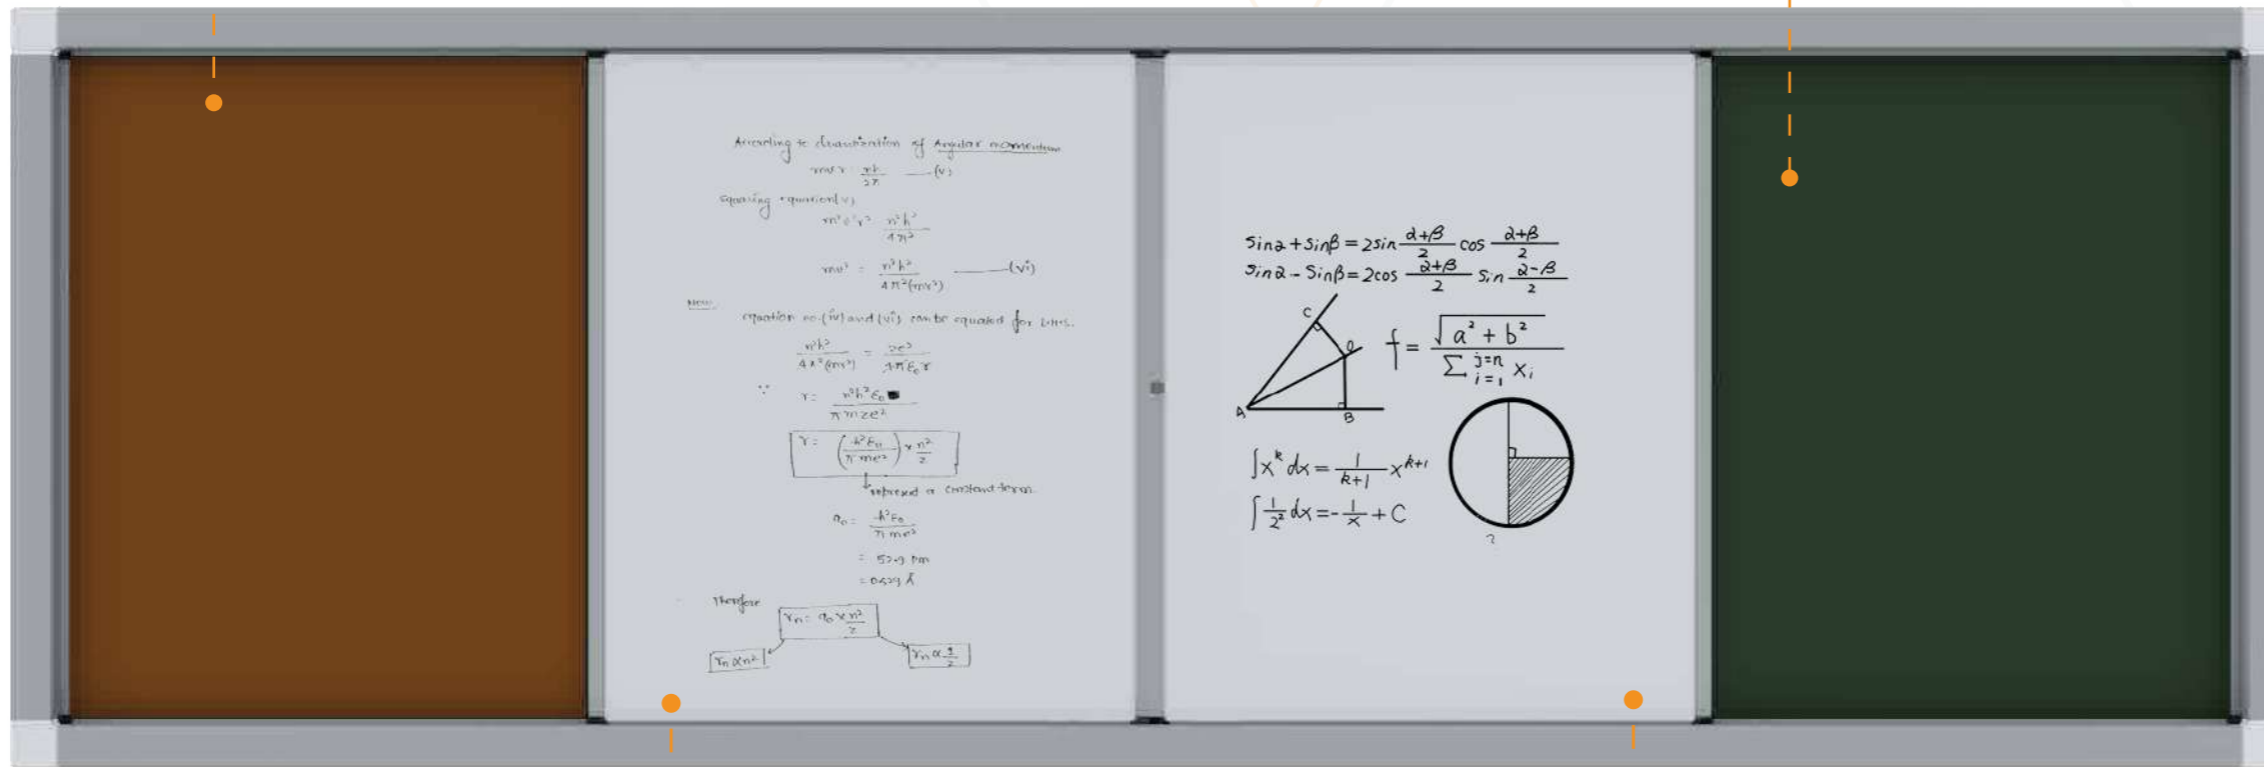 According to Quantization of Angular momentum
mvr = nh/2π ——(v)
squaring equation(v)
m²v²r² n²h²/4π²
mv² = n²h²/4π²(mr²) ——(vi)
Now
equation no.(iv) and (vi) can be equated for
n²h²/4π²(mr²) = ze²/4πε₀r
∵ r = n²h²ε₀/πmze²
r = (h²ε₀/πme²) × n²/z
represent a constant term
a₀ = h²ε₀/πme²
= 52.9 pm
= 0.529 Å
Therefore
rₙ = a₀ × n²/z
rₙ ∝ n²
rₙ ∝ 1/z
sinα + sinβ = 2sin α+β/2 cos α+β/2
sinα - sinβ = 2cos α+β/2 sin α-β/2
C
A
B
f = √(a² + b²)/∑ j=n i=1 xᵢ
∫xᵏ dx = 1/k+1 xᵏ⁺¹
∫1/2² dx = -1/x + C
?